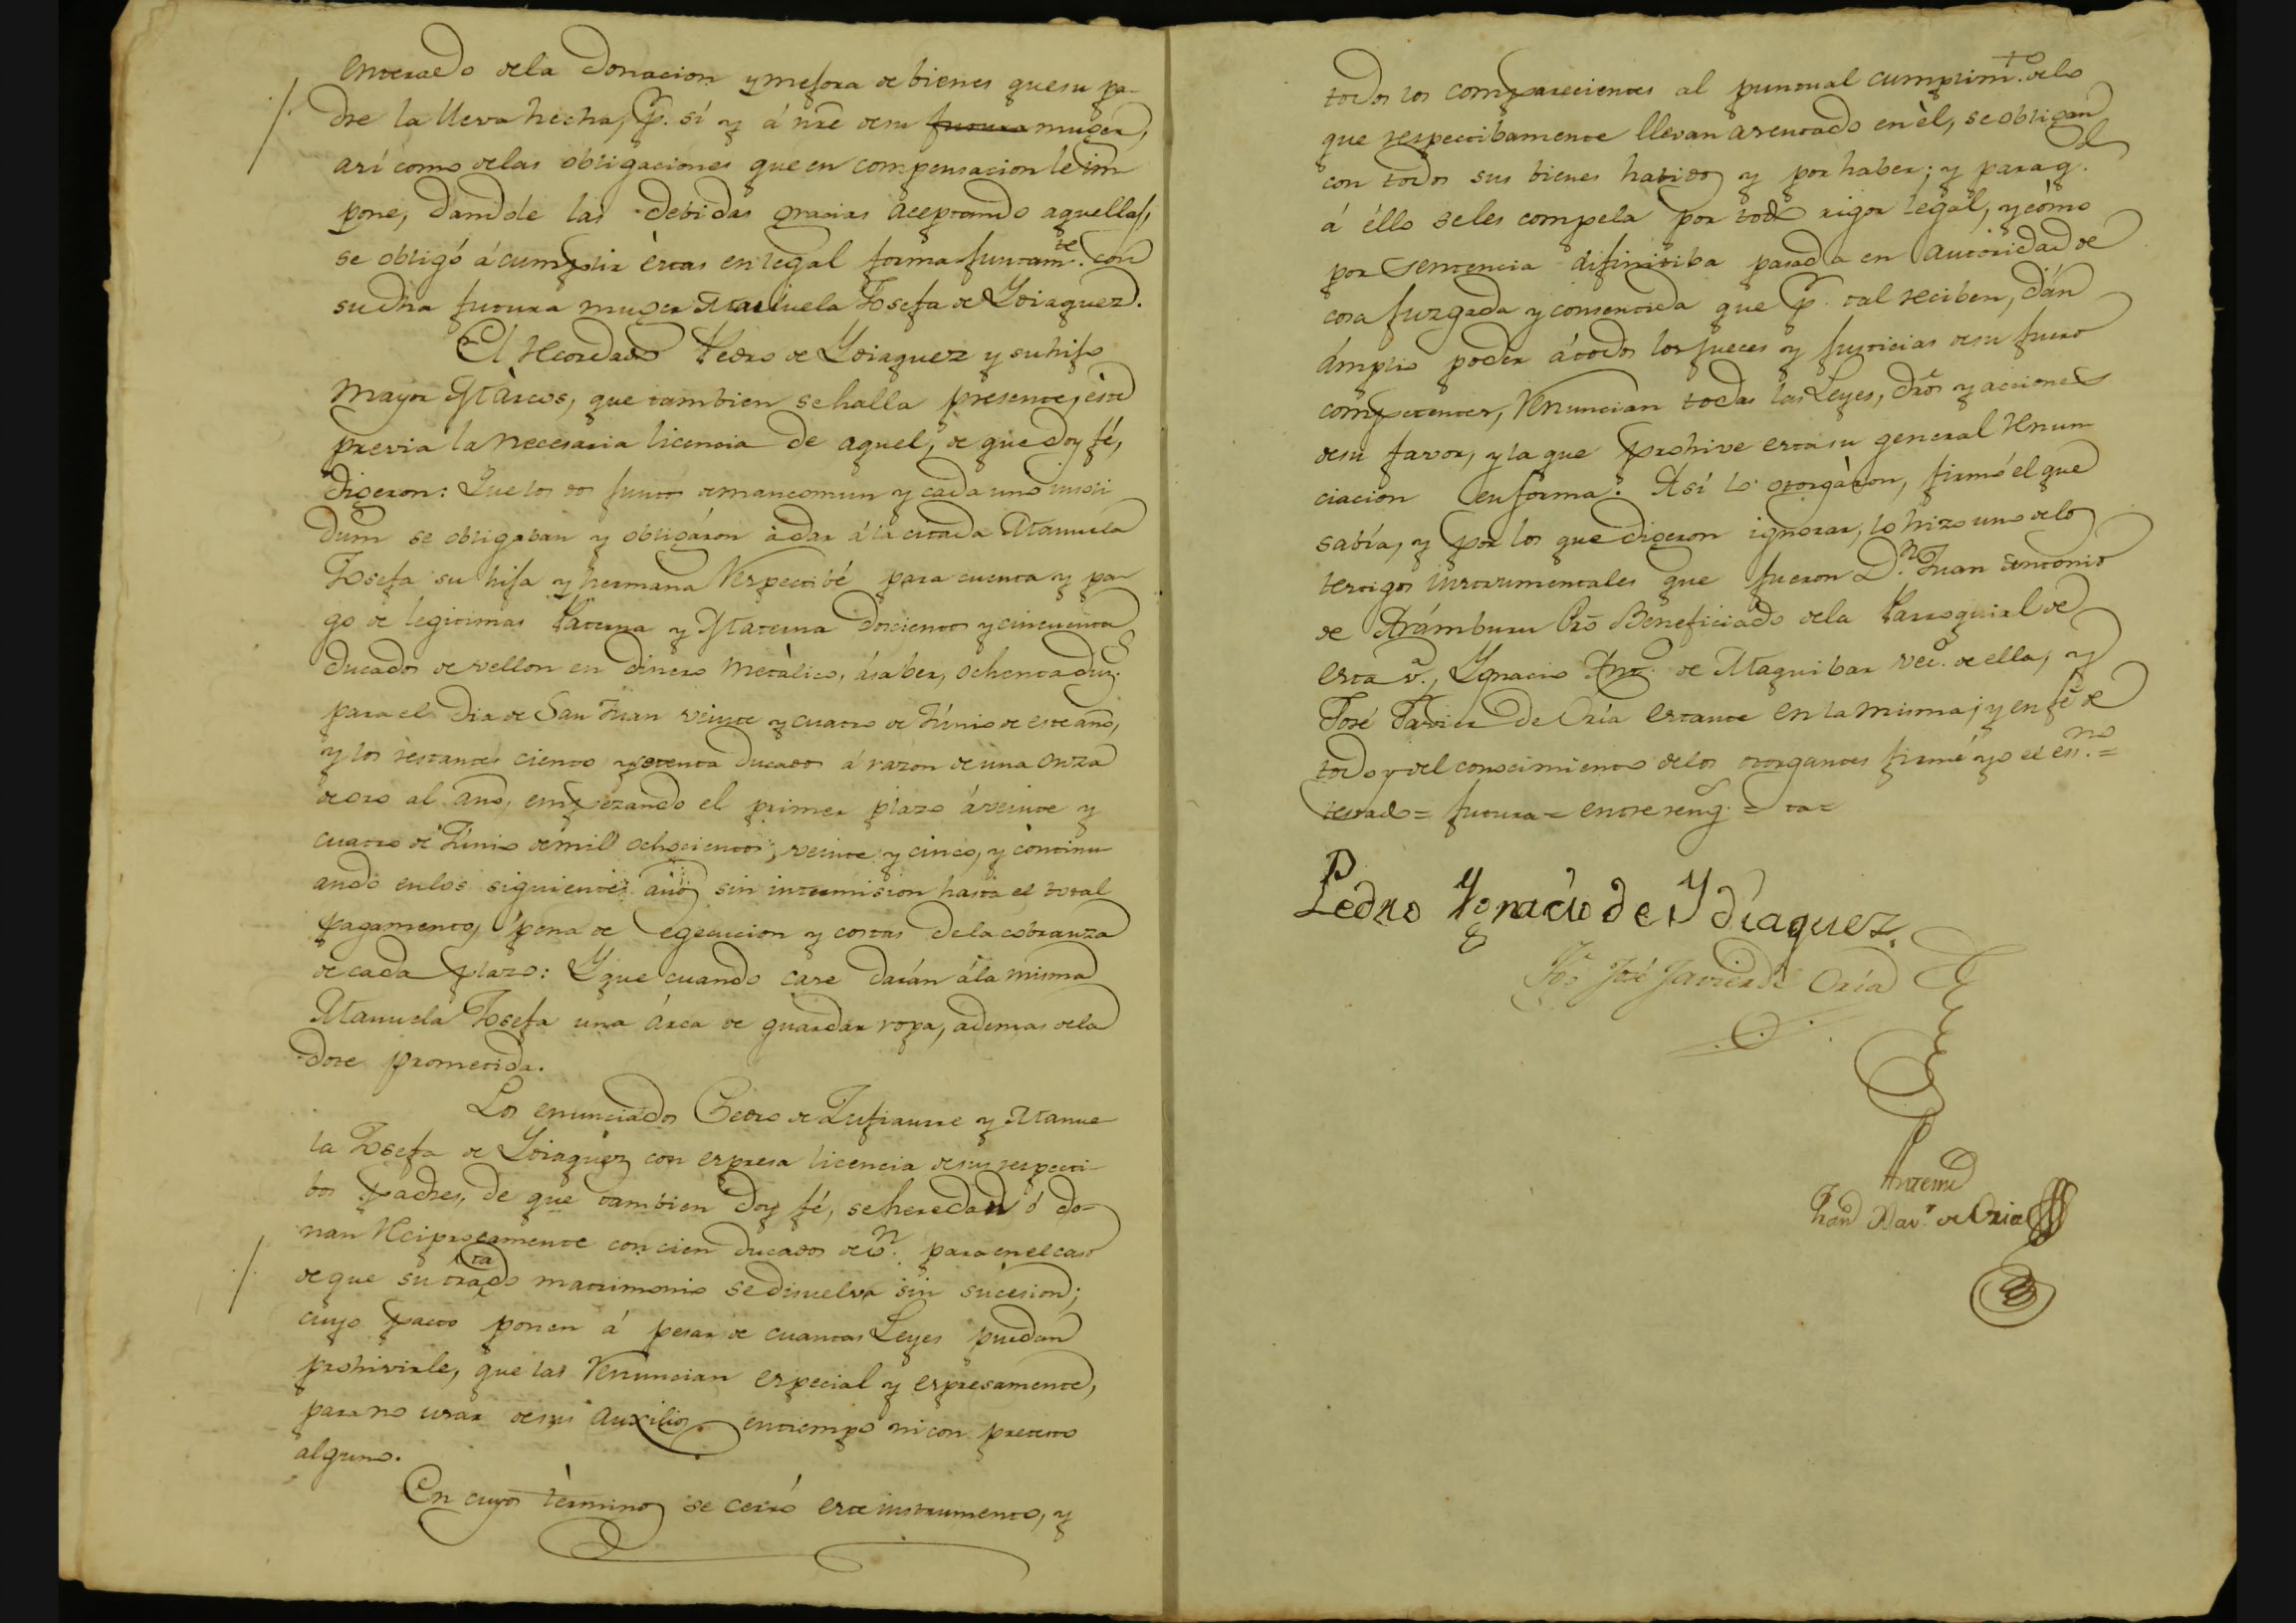 enterado dela donacion y mejora de bienes que su pa-
dre la lleva hecha, p.r sí y á nre desu futura muger,
así como delas obligaciones que en compensacion le im
pone, dandole las debidas gracias aceptando aquellas,
se obligó á cumplir èstas en legal forma juntam.te con
su dha futura muger Manuela Josefa de Ydiaquez.
El Recordado Pedro de Ydiaquez y su hijo
mayor Màrcos, que tambien se halla presente, éste
previa la necesaria licencia de aquel, de que doy fé,
digeron: Que los dos juntos demancomun y cada uno insoli
dum se obligaban y obligáron á dar á la citada Manuela
Josefa su hija y hermana Respectibé para cuenta y pa-
go de legitimas Paterna y Materna doscientos y cincuenta
ducados de vellon en dinero metàlico, á saber, ochenta duc.s
para el dia de San Juan veinte y cuatro de Júnio de este año,
y los restantes ciento y setenta ducados á razon de una onza
de oro al año, empezando el primer plazo á veinte y
cuatro de Júnio de mil ochocientos, veinte y cinco, y continu
ando en los siguientes años sin intermision hasta el total
pagamento, pena de egecucion y costas dela cobranza
de cada plazo: Y que cuando case darán á la misma
Manuela Josefa una árca de guardar ropa, ademas dela
dote prometida.
Los enunciados Pedro de Zufiaurre y Manue
la Josefa de Ydiaquez con espresa licencia desus respecti-
bos padres, de que tambien doy fé, se heredan ó do-
nan Reciprocamente con cien ducados de v.n para en el caso
de que su tratado matrimonio se disuelva sin sucesion;
cuyo pacto ponen á pesar de cuantas Leyes puedan
prohivirle, que las Renuncian especial y espresamente,
para no usar desus auxilios en tiempo ni con pretesto
alguno.
En cuyos tèrminos se cerró este instrumento, y
todos los comparecientes al puntual cumplim.to delo
que respectibamente llevan asentado en èl, se obligan
con todos sus bienes habidos y por haber; y para q.e
á éllo seles compela por todo rigor legal, y cómo
por sentencia difinitiba pasada en autoridad de
cosa juzgada y consentida que p.r tal reciben, dán
ámplio poder á todos los jueces y justicias desu fuero
competentes, Renuncian todas las Leyes, dros y acciones
desu favor, y la que prohive esta su general Renun
ciacion en forma. Así lo otorgàron, firmó el que
sabía, y por los que digeron ignorar, lo hizo uno delos
testigos instrumentales que fueron D.n Juan Antonio
de Arámburu Pro Beneficiado dela Parroquial de
esta v.a, Ygnacio Ant.o de Maquibar vec.o de ella, y
José Javier de Oria estante en la misma; y en fé de
todo y del conocimiento delos otorgantes firmé yo el es.no =
testado = futura = entre reng.s = ta =
Pedro Ygnacio de Ydiaquez.
T.o José Javier de Oria
Antemi
Fran.co Xav.r de Oria